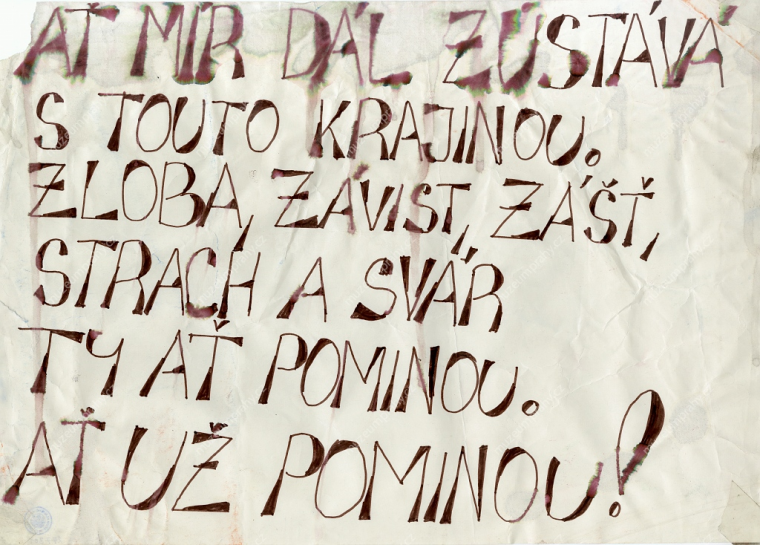 AŤ MÍR DÁL ZŮSTÁVÁ
S TOUTO KRAJINOU.
ZLOBA, ZÁVIST, ZÁŠŤ,
STRACH A SVÁR
TY AŤ POMINOU.
AŤ UŽ POMINOU!